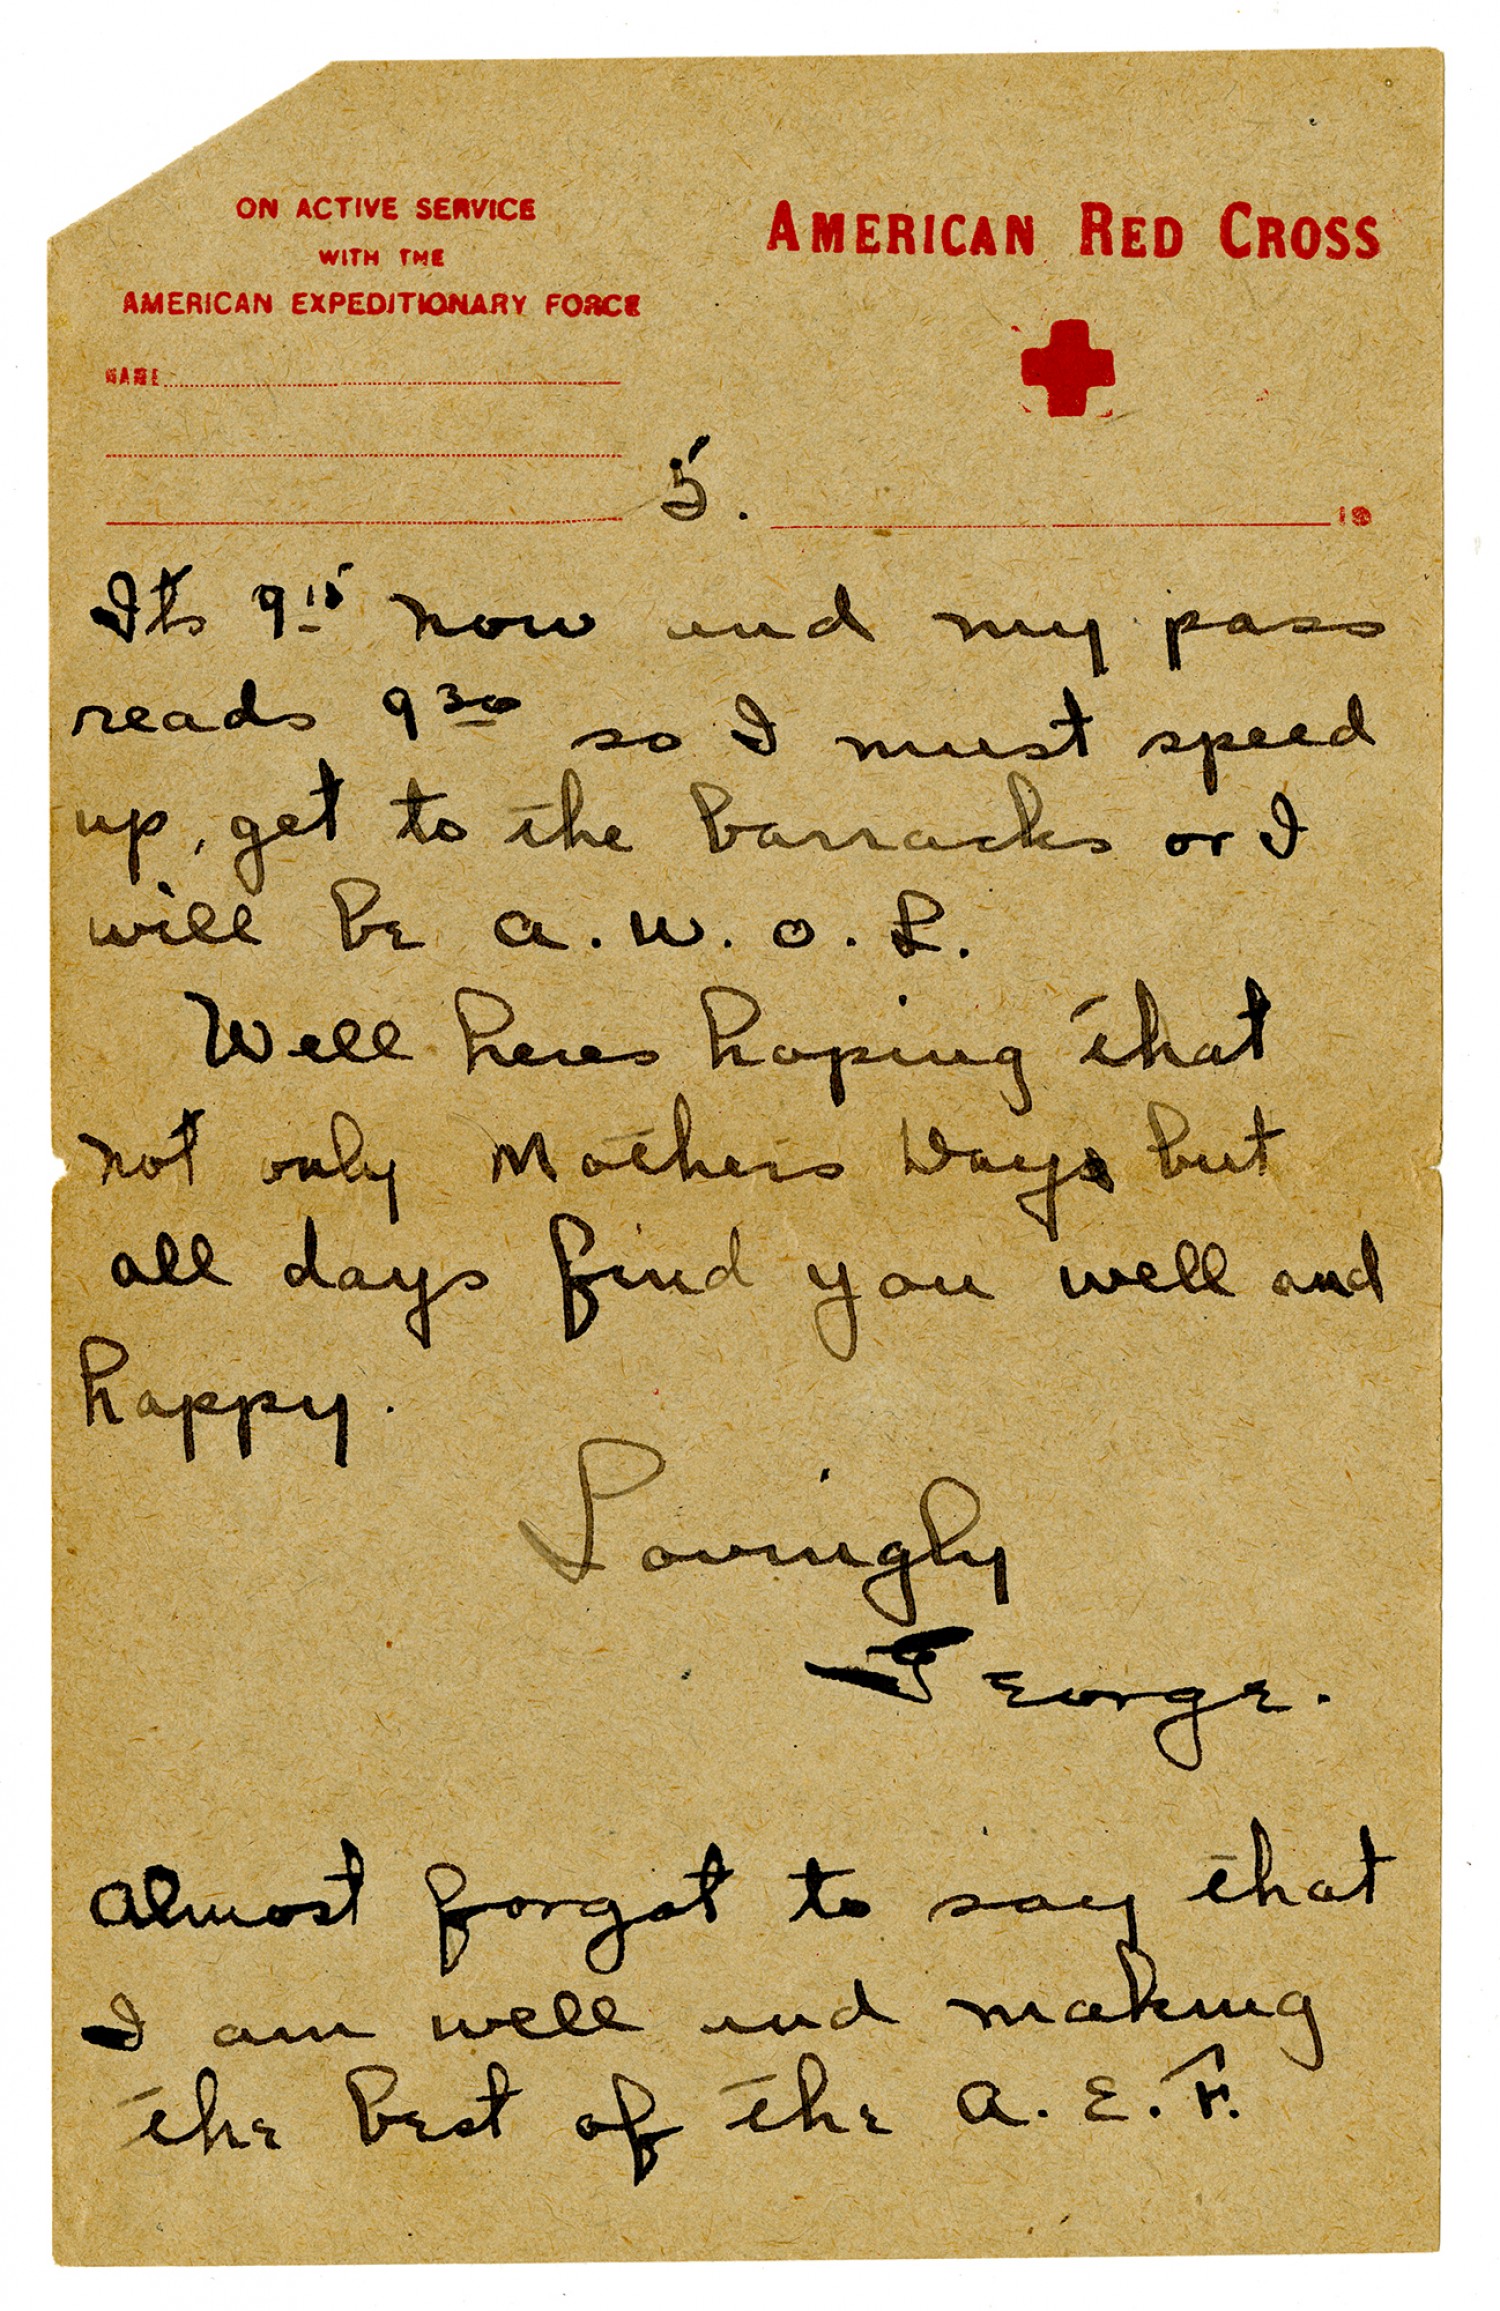 ON ACTIVE SERVICE
WITH THE
AMERICAN EXPEDITIONARY FORCE
AMERICAN RED CROSS
NAME
5.
19
Its 9 15 now and my pass
reads 9 30 so I must speed
up, get to the barracks or I
will be A.W.O.L.
Well heres hoping that
not only Mothers Days but
all days find you well and
happy.
Lovingly
George.
Almost forgot to say that
I am well and making
the best of the A.E.F.